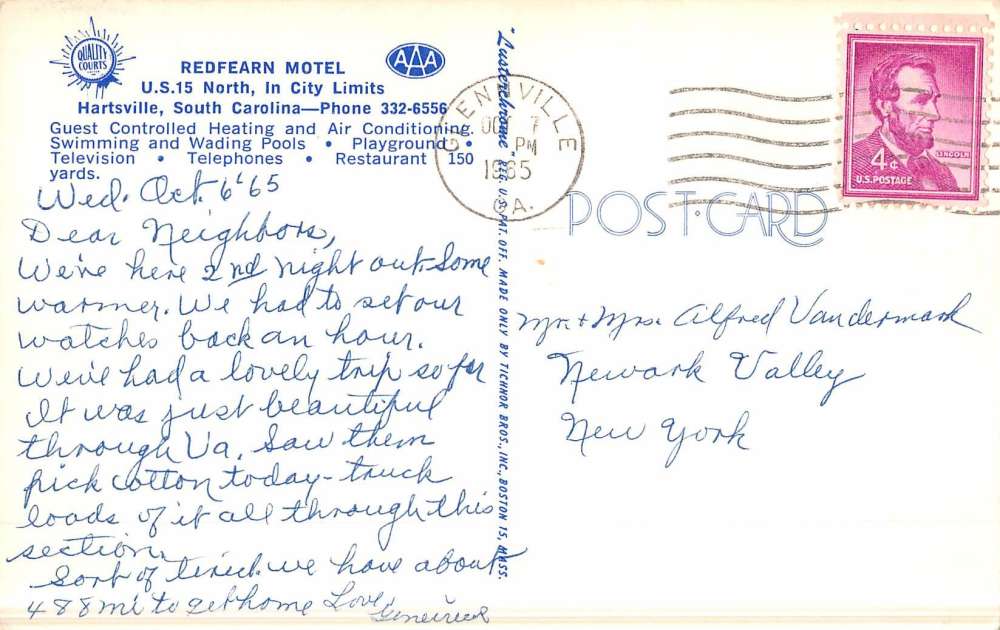 QUALITY
COURTS
AAA
REDFEARN MOTEL
U.S.15 North, In City Limits
Hartsville, South Carolina—Phone 332-6556
Guest Controlled Heating and Air Conditioning.
Swimming and Wading Pools • Playground •
Television • Telephones • Restaurant 150
yards.
Wed. Oct. 6 '65
Dear Neighbors,
We're here 2nd night out. Some
warmer. We had to set our
watches back an hour.
We've had a lovely trip so far
It was just beautiful
through Va. Saw them
pick cotton today - truck
loads of it all through this
section.
Sort of tired. we have about
488 mi to get home Love,
"Lusterchrome" REG. U.S. PAT. OFF. MADE ONLY BY TICHNOR BROS., INC., BOSTON 15, MASS.
GLENNVILLE
OCT 7
PM
1965
GA.
4¢
LINCOLN
U.S. POSTAGE
POST CARD
Mr. + Mrs. Alfred Vandermark
Newark Valley
New York